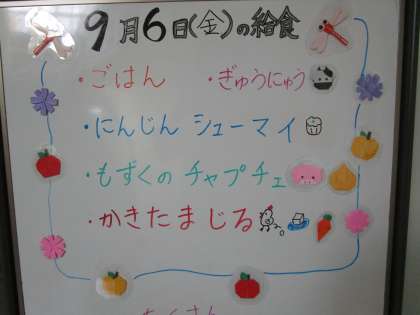 9月6日(金)の給食
・ごはん ・ぎゅうにゅう
・にんじん シューマイ
・もずくの チャプチェ
・かきたまじる
たくさん